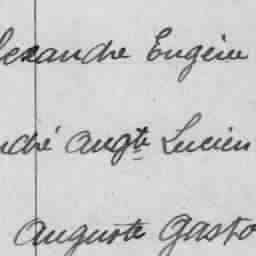 lexandre Eugène
ndré Augte Lucien
Auguste Gasto